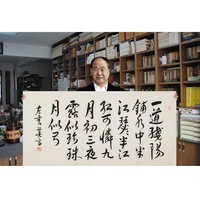 一道殘陽
鋪水中半
江瑟瑟半江
紅可憐九
月初三夜
露似珍珠
月似弓
左書莫言